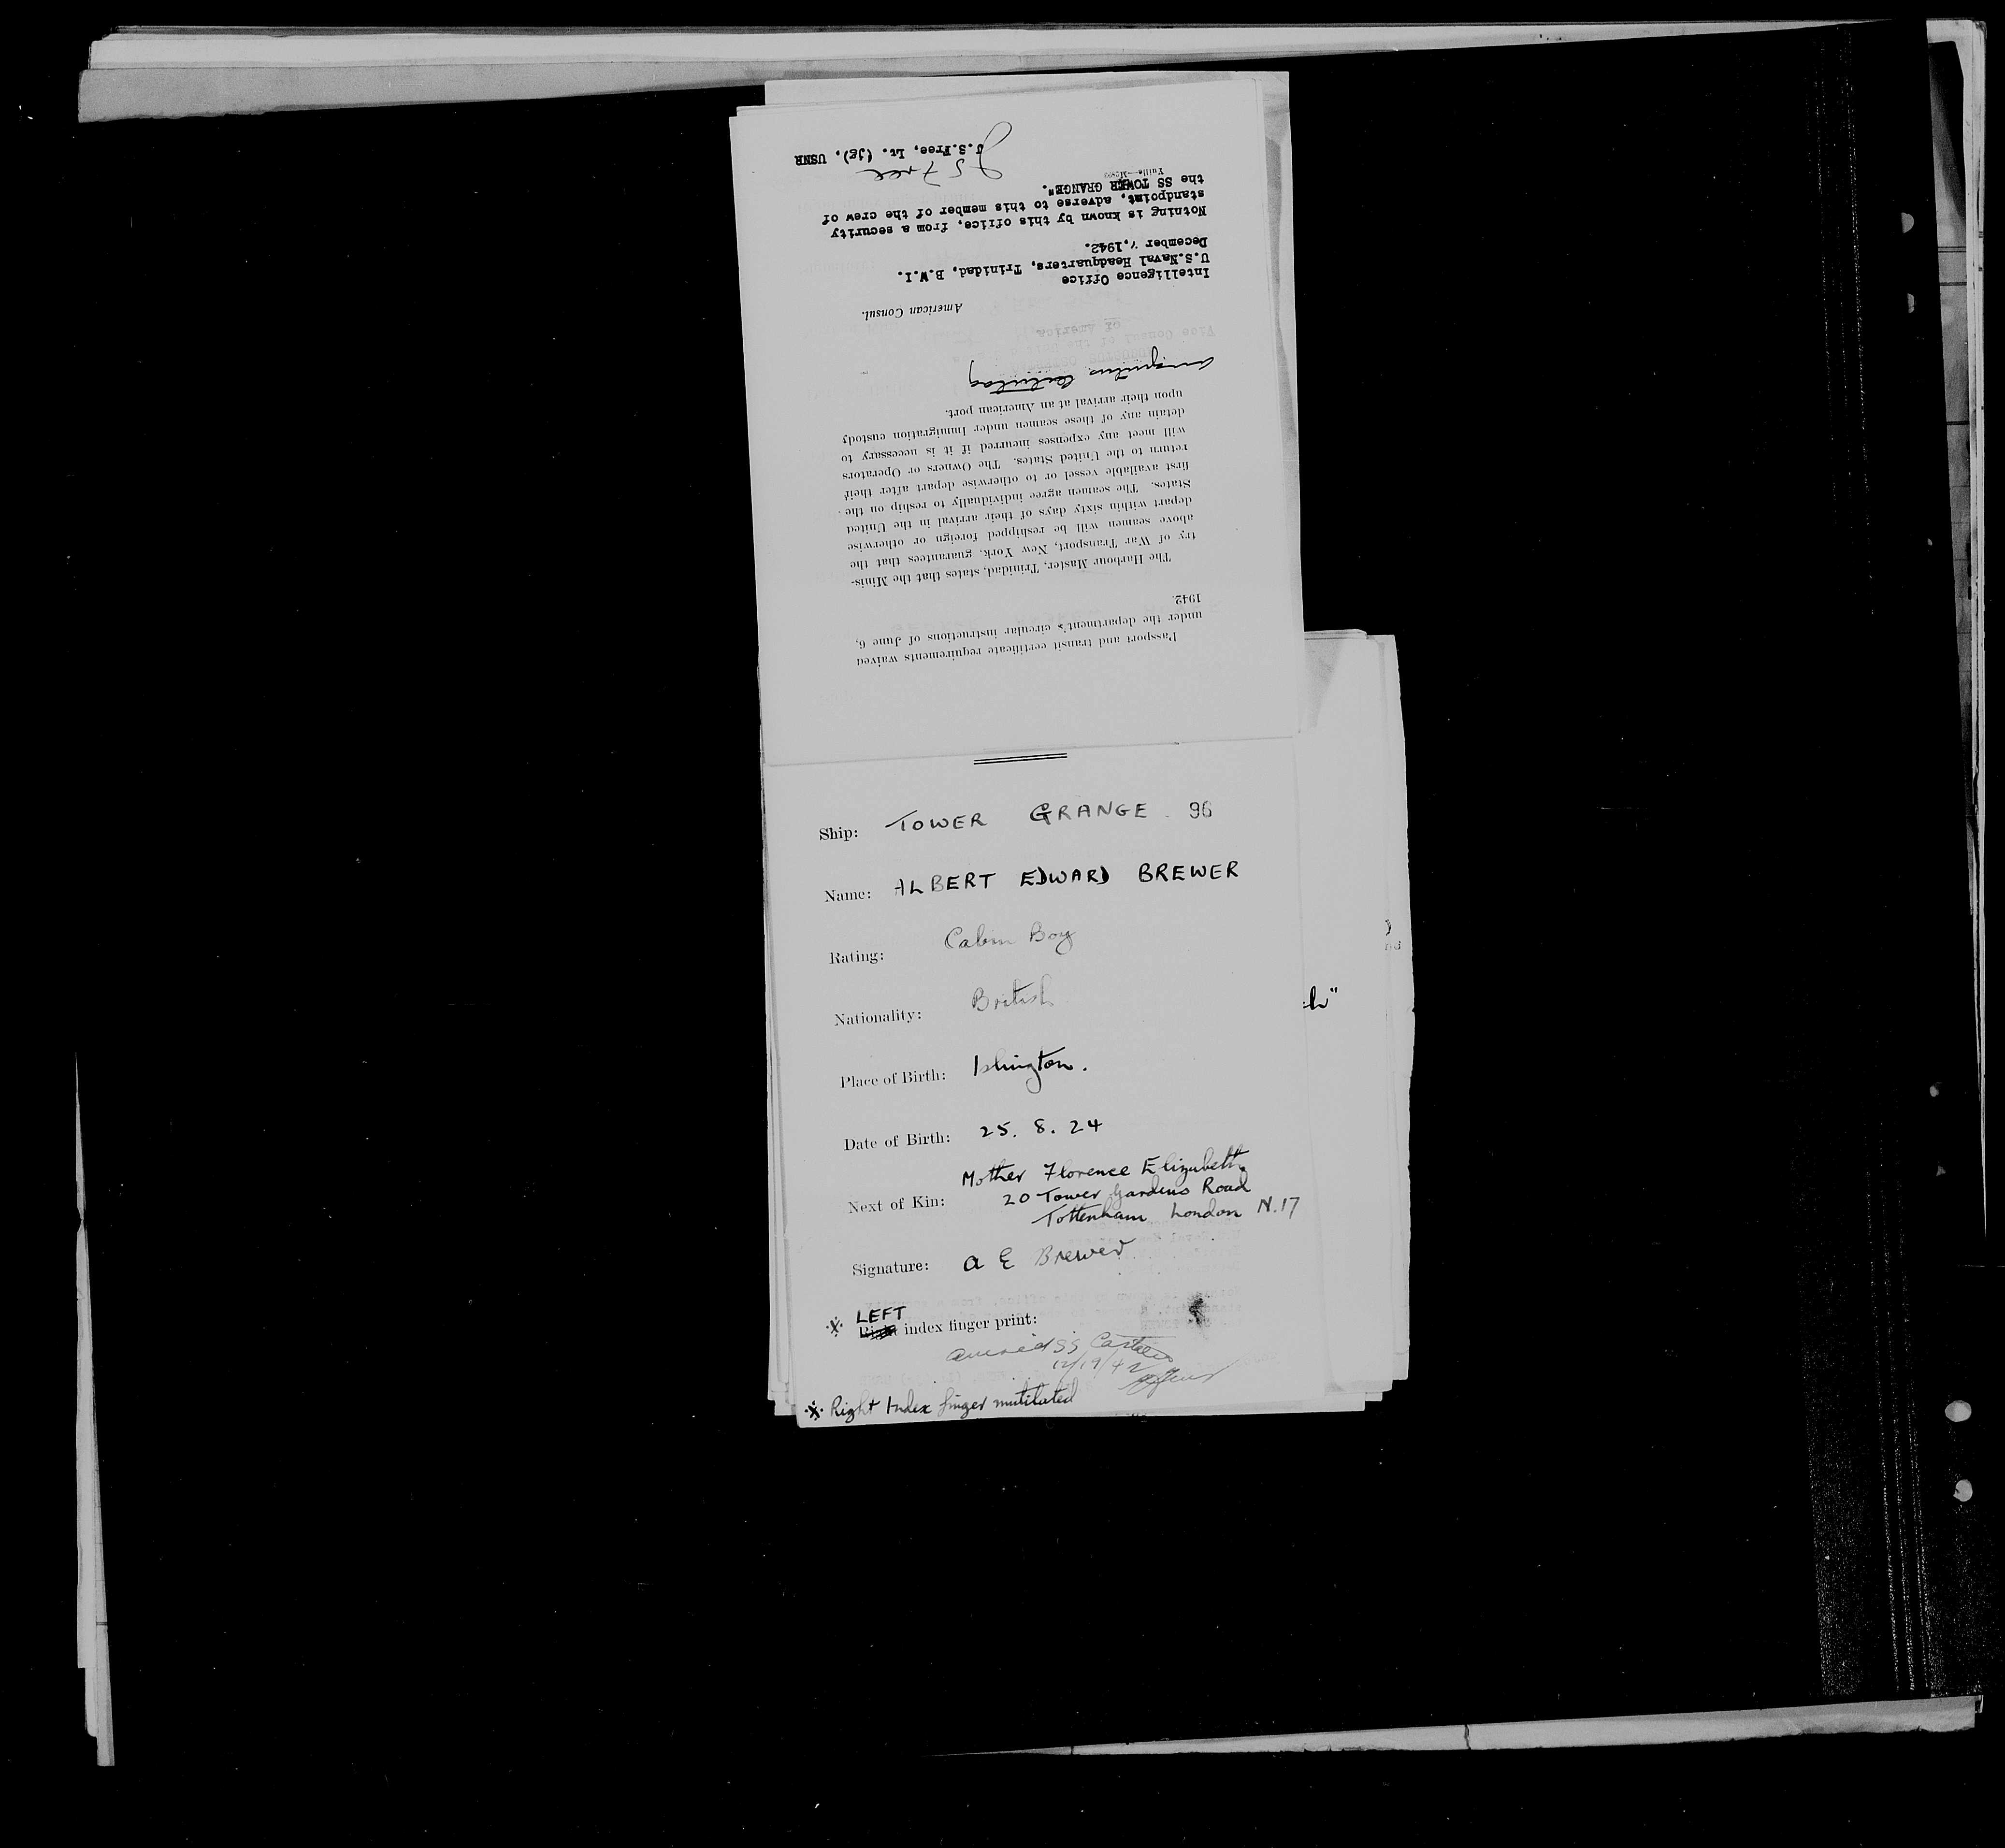 Passport and transit certificate requirements waived
under the department's circular instructions of June 6,
1942.
The Harbour Master, Trinidad, states that the Minis-
try of War Transport, New York, guarantees that the
above seamen will be reshipped foreign or otherwise
depart within sixty days of their arrival in the United
States. The seamen agree individually to reship on the
first available vessel or to otherwise depart after their
return to the United States. The Owners or Operators
will meet any expenses incurred if it is necessary to
detain any of these seamen under Immigration custody
upon their arrival at an American port.
American Consul.
Intelligence Office
U.S.Naval Headquarters, Trinidad, B.W.I.
December 7,1942.
Notning is known by this office, from a security
standpoint, adverse to this member of the crew of
the SS TOWER GRANGE".
J S Free
J.S.Free, Lt. (jg), USNR
Ship: TOWER GRANGE. 96
Name: ALBERT EDWARD BREWER
Rating: Cabin Boy
Nationality: British
Place of Birth: Islington.
Date of Birth: 25. 8. 24
Mother Florence Elizabeth
Next of Kin: 20 Tower Gardens Road
Tottenham London N.17
Signature: A E Brewer
LEFT
Right index finger print:
SS
12/19/42
Right Index finger mutilated